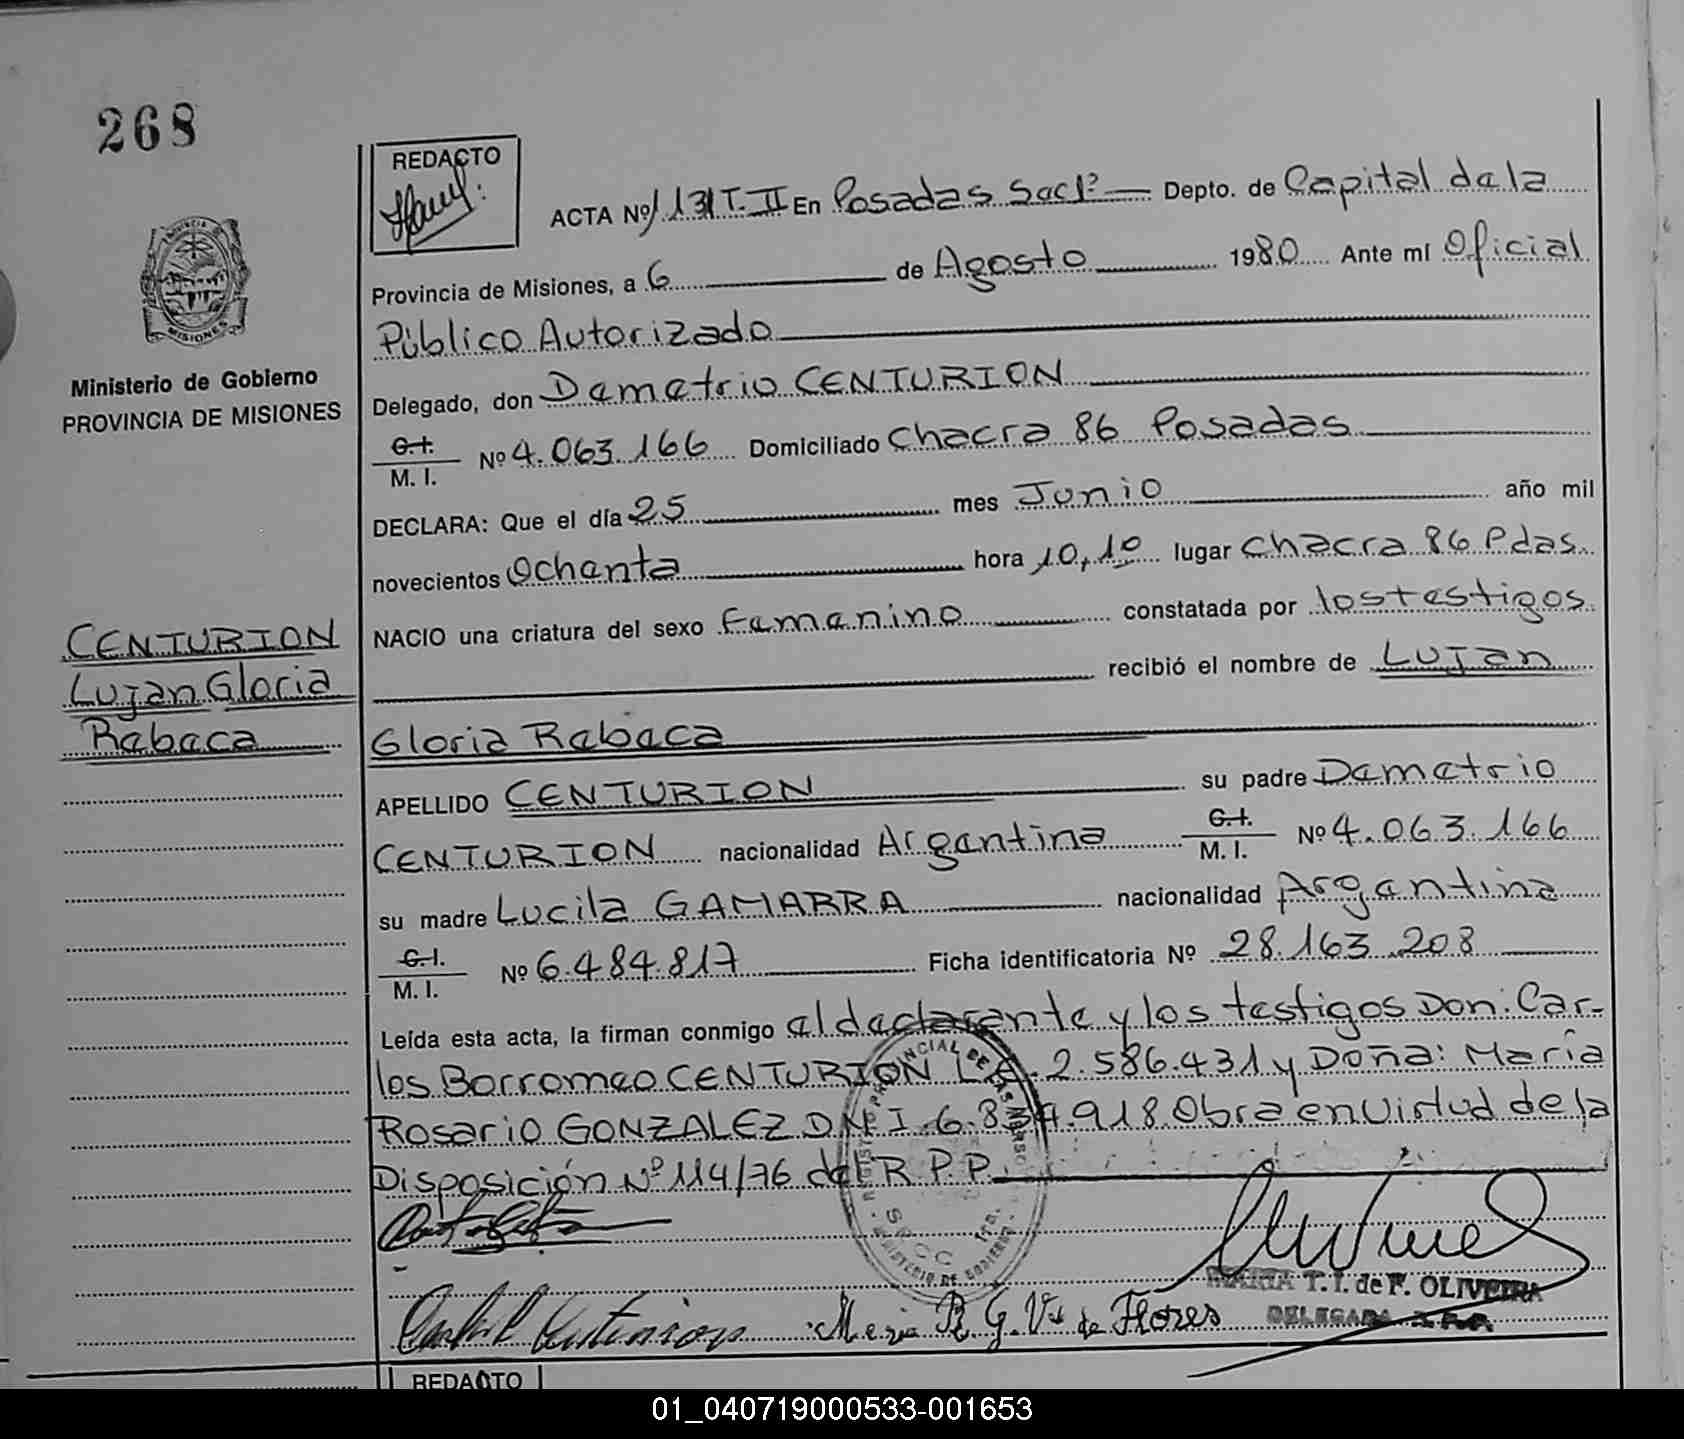 268
REDACTO
ACTA Nº 1131 T. II En Posadas Secc 1ª Depto. de Capital de la
Provincia de Misiones, a 6 de Agosto 1980 Ante mí Oficial
Público Autorizado
Delegado, don Demetrio CENTURION
C.I.
M. I. Nº 4.063.166 Domiciliado Chacra 86 Posadas
DECLARA: Que el día 25 mes Junio año mil
novecientos Ochenta hora 10,10 lugar Chacra 86 Pdas.
NACIO una criatura del sexo Femenino constatada por los testigos
recibió el nombre de Lujan
Gloria Rebeca
APELLIDO CENTURION su padre Demetrio
CENTURION nacionalidad Argentina C.I. M. I. Nº 4.063.166
su madre Lucila GAMARRA nacionalidad Argentina
C.I.
M. I. Nº 6.484.817 Ficha identificatoria Nº 28.163.208
Leída esta acta, la firman conmigo el declarante y los testigos Don: Car-
los Borromeo CENTURION L.E. 2.586.431 y Doña: María
Rosario GONZALEZ D N I 6.834.918 Obra en Virtud de la
Disposición Nº 114/76 del R. P. P.
María R. G. Vda de Flores
MARTA T. I. de F. OLIVEIRA
DELEGADA
Ministerio de Gobierno
PROVINCIA DE MISIONES
CENTURION
Lujan Gloria
Rebeca
REDACTO
01_040719000533-001653